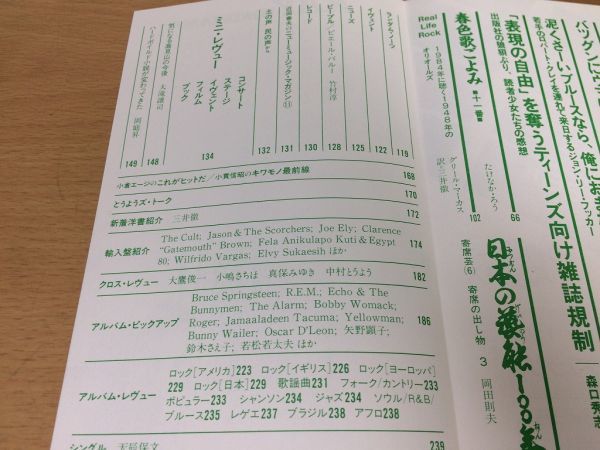 バツグンに
泥くさーいブルースなら、俺にお
若手のロバート・クレイを連れて来日するジョン・リー・フッカー
「表現の自由」を奪うティーンズ向け雑誌規制
出版社の狼狽ぶり、読者少女たちの感想
たけなか・ろう
66
森口秀志
春色歌ごよみ
第十一番
グリール・マーカス
訳・三井徹
102
日本の芸能100年
寄席芸(6)
寄席の出し物 3
岡田則夫
Real Life Rock
1984年に聴く1948年の
オリオールズ
ランダム・ノーツ
119
イヴェント
122
ニューズ
125
ピープル/ピエール・バルー
竹村淳
128
レコード
130
近田春夫のニューミュージック・マガジン⑪
131
土の声 民の声
132
ミニ・レヴュー
コンサート
ステージ
イヴェント
フィルム
ブック
134
気になる蓄音
の今後
大滝譲司
148
ハードボイルド小説が変わってきた
岡庭昇
149
小倉エージのこれがヒットだ/小貫信昭のキワモノ最前線
168
とうようズ・トーク
170
新着洋書紹介 三井徹
172
輸入盤紹介
The Cult; Jason & The Scorchers; Joe Ely; Clarence
"Gatemouth" Brown; Fela Anikulapo Kuti & Egypt
80; Wilfrido Vargas; Elvy Sukaesih ほか
174
クロス・レヴュー 大鷹俊一 小嶋さちほ 真保みゆき 中村とうよう
182
アルバム・ピックアップ
Bruce Springsteen; R.E.M.; Echo & The
Bunnymen; The Alarm; Bobby Womack;
Roger; Jamaaladeen Tacuma; Yellowman;
Bunny Wailer; Oscar D'Leon; 矢野顕子;
鈴木さえ子; 若松若太夫 ほか
186
アルバム・レヴュー
ロック[アメリカ]223 ロック[イギリス]226 ロック[ヨーロッパ]
229 ロック[日本]229 歌謡曲231 フォーク/カントリー233
ポピュラー233 シャンソン234 ジャズ234 ソウル/R&B/
ブルース235 レゲエ237 ブラジル238 アフロ238
シングル 天辰保文
239